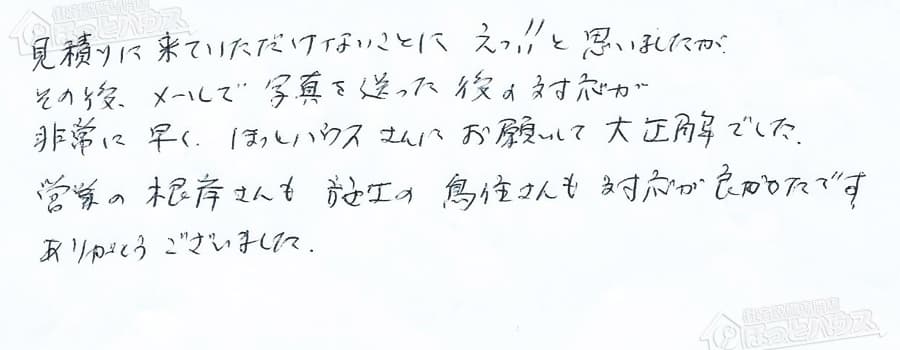 見積りに来ていただけないことに えっ!!と思いましたが、
その後、メールで写真を送った後の対応が
非常に早く、ほっとハウスさんにお願いして大正解でした。
営業の根岸さんも施工の鳥住さんも対応が良かったです
ありがとうございました。
住宅設備専門店
ほっとハウス
住宅設備専門店
ほっとハウス